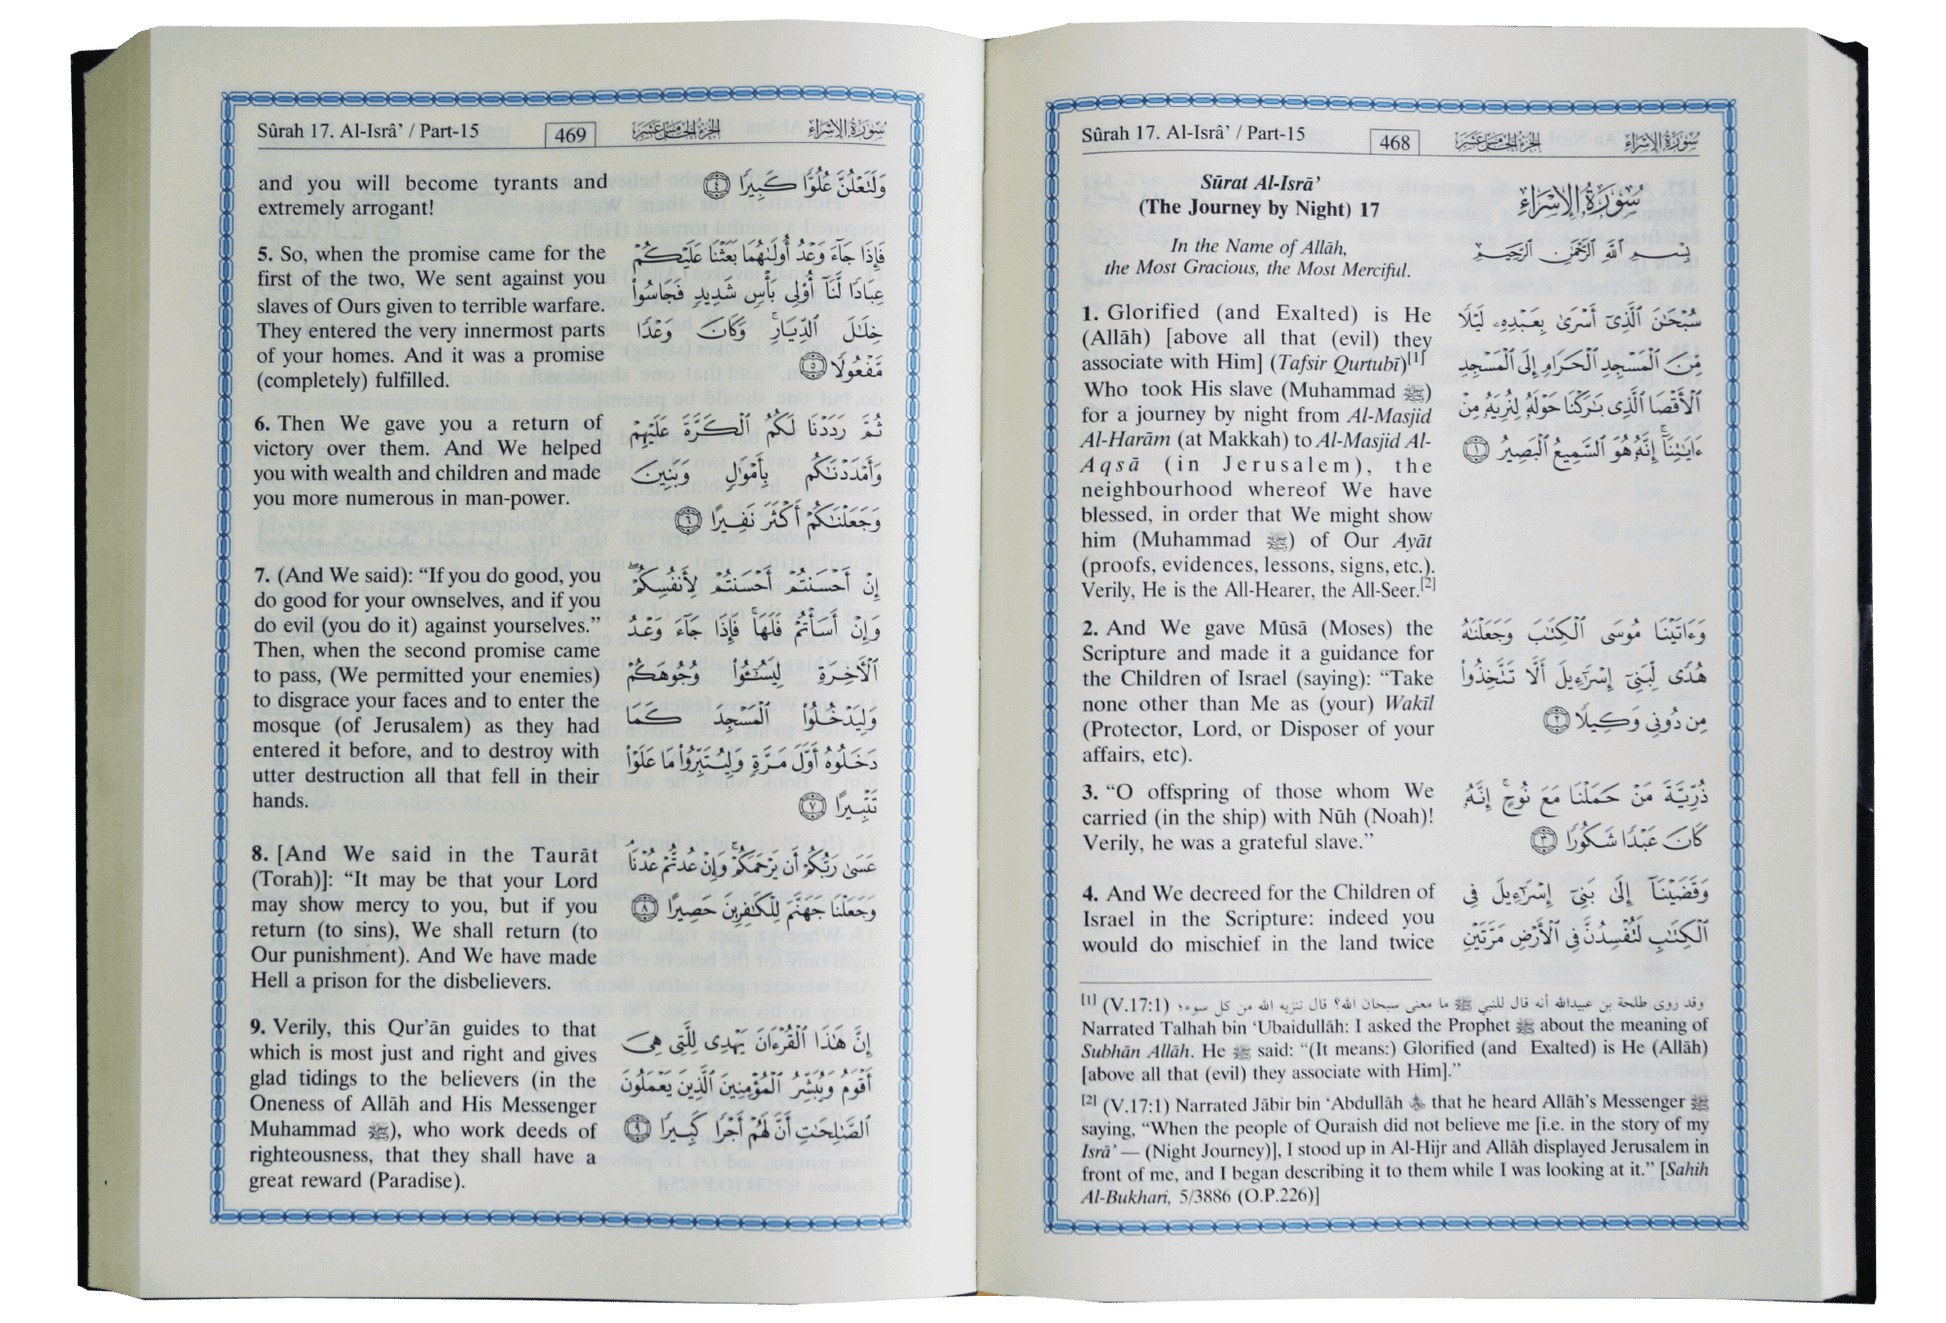 Sûrah 17. Al-Isrâ’ / Part-15
468
الجزء الخامس عشر
سورة الإسراء
Sūrat Al-Isrā’
(The Journey by Night) 17
In the Name of Allāh,
the Most Gracious, the Most Merciful.
1. Glorified (and Exalted) is He
(Allāh) [above all that (evil) they
associate with Him] (Tafsir Qurtubī)[1]
Who took His slave (Muhammad ﷺ)
for a journey by night from Al-Masjid
Al-Harām (at Makkah) to Al-Masjid Al-
Aqsā (in Jerusalem), the
neighbourhood whereof We have
blessed, in order that We might show
him (Muhammad ﷺ) of Our Ayāt
(proofs, evidences, lessons, signs, etc.).
Verily, He is the All-Hearer, the All-Seer.[2]
2. And We gave Mūsā (Moses) the
Scripture and made it a guidance for
the Children of Israel (saying): “Take
none other than Me as (your) Wakīl
(Protector, Lord, or Disposer of your
affairs, etc).
3. “O offspring of those whom We
carried (in the ship) with Nūh (Noah)!
Verily, he was a grateful slave.”
4. And We decreed for the Children of
Israel in the Scripture: indeed you
would do mischief in the land twice
سُورَةُ الإِسْرَاءِ
بِسْمِ ٱللَّهِ ٱلرَّحْمَٰنِ ٱلرَّحِيمِ
سُبْحَٰنَ ٱلَّذِىٓ أَسْرَىٰ بِعَبْدِهِۦ لَيْلًا
مِّنَ ٱلْمَسْجِدِ ٱلْحَرَامِ إِلَى ٱلْمَسْجِدِ
ٱلْأَقْصَا ٱلَّذِى بَٰرَكْنَا حَوْلَهُۥ لِنُرِيَهُۥ مِنْ
ءَايَٰتِنَآ ۚ إِنَّهُۥ هُوَ ٱلسَّمِيعُ ٱلْبَصِيرُ ١
وَءَاتَيْنَا مُوسَى ٱلْكِتَٰبَ وَجَعَلْنَٰهُ
هُدًى لِّبَنِىٓ إِسْرَٰٓءِيلَ أَلَّا تَتَّخِذُوا۟
مِن دُونِى وَكِيلًا ٢
ذُرِّيَّةَ مَنْ حَمَلْنَا مَعَ نُوحٍ ۚ إِنَّهُۥ
كَانَ عَبْدًا شَكُورًا ٣
وَقَضَيْنَآ إِلَىٰ بَنِىٓ إِسْرَٰٓءِيلَ فِى
ٱلْكِتَٰبِ لَتُفْسِدُنَّ فِى ٱلْأَرْضِ مَرَّتَيْنِ
[1] (V.17:1) وقد روى طلحة بن عبيدالله أنه قال للنبي ﷺ ما معنى سبحان الله؟ قال تنزيه الله من كل سوء؛
Narrated Talhah bin ‘Ubaidullāh: I asked the Prophet ﷺ about the meaning of
Subhān Allāh. He ﷺ said: “(It means:) Glorified (and Exalted) is He (Allāh)
[above all that (evil) they associate with Him].”
[2] (V.17:1) Narrated Jābir bin ‘Abdullāh that he heard Allāh’s Messenger ﷺ
saying, “When the people of Quraish did not believe me [i.e. in the story of my
Isrā’ — (Night Journey)], I stood up in Al-Hijr and Allāh displayed Jerusalem in
front of me, and I began describing it to them while I was looking at it.” [Sahih
Al-Bukhari, 5/3886 (O.P.226)]
Sûrah 17. Al-Isrâ’ / Part-15
469
الجزء الخامس عشر
سورة الإسراء
and you will become tyrants and
extremely arrogant!
5. So, when the promise came for the
first of the two, We sent against you
slaves of Ours given to terrible warfare.
They entered the very innermost parts
of your homes. And it was a promise
(completely) fulfilled.
6. Then We gave you a return of
victory over them. And We helped
you with wealth and children and made
you more numerous in man-power.
7. (And We said): “If you do good, you
do good for your ownselves, and if you
do evil (you do it) against yourselves.”
Then, when the second promise came
to pass, (We permitted your enemies)
to disgrace your faces and to enter the
mosque (of Jerusalem) as they had
entered it before, and to destroy with
utter destruction all that fell in their
hands.
8. [And We said in the Taurāt
(Torah)]: “It may be that your Lord
may show mercy to you, but if you
return (to sins), We shall return (to
Our punishment). And We have made
Hell a prison for the disbelievers.
9. Verily, this Qur’ān guides to that
which is most just and right and gives
glad tidings to the believers (in the
Oneness of Allāh and His Messenger
Muhammad ﷺ), who work deeds of
righteousness, that they shall have a
great reward (Paradise).
وَلَتَعْلُنَّ عُلُوًّا كَبِيرًا ٤
فَإِذَا جَآءَ وَعْدُ أُولَىٰهُمَا بَعَثْنَا عَلَيْكُمْ
عِبَادًا لَّنَآ أُو۟لِى بَأْسٍ شَدِيدٍ فَجَاسُوا۟
خِلَٰلَ ٱلدِّيَارِ ۚ وَكَانَ وَعْدًا
مَّفْعُولًا ٥
ثُمَّ رَدَدْنَا لَكُمُ ٱلْكَرَّةَ عَلَيْهِمْ
وَأَمْدَدْنَٰكُم بِأَمْوَٰلٍ وَبَنِينَ
وَجَعَلْنَٰكُمْ أَكْثَرَ نَفِيرًا ٦
إِنْ أَحْسَنتُمْ أَحْسَنتُمْ لِأَنفُسِكُمْ ۖ
وَإِنْ أَسَأْتُمْ فَلَهَا ۚ فَإِذَا جَآءَ وَعْدُ
ٱلْءَاخِرَةِ لِيَسُۥٓـُٔوا۟ وُجُوهَكُمْ
وَلِيَدْخُلُوا۟ ٱلْمَسْجِدَ كَمَا
دَخَلُوهُ أَوَّلَ مَرَّةٍ وَلِيُتَبِّرُوا۟ مَا عَلَوْا۟
تَتْبِيرًا ٧
عَسَىٰ رَبُّكُمْ أَن يَرْحَمَكُمْ ۚ وَإِنْ عُدتُّمْ عُدْنَا ۘ
وَجَعَلْنَا جَهَنَّمَ لِلْكَٰفِرِينَ حَصِيرًا ٨
إِنَّ هَٰذَا ٱلْقُرْءَانَ يَهْدِى لِلَّتِى هِىَ
أَقْوَمُ وَيُبَشِّرُ ٱلْمُؤْمِنِينَ ٱلَّذِينَ يَعْمَلُونَ
ٱلصَّٰلِحَٰتِ أَنَّ لَهُمْ أَجْرًا كَبِيرًا ٩